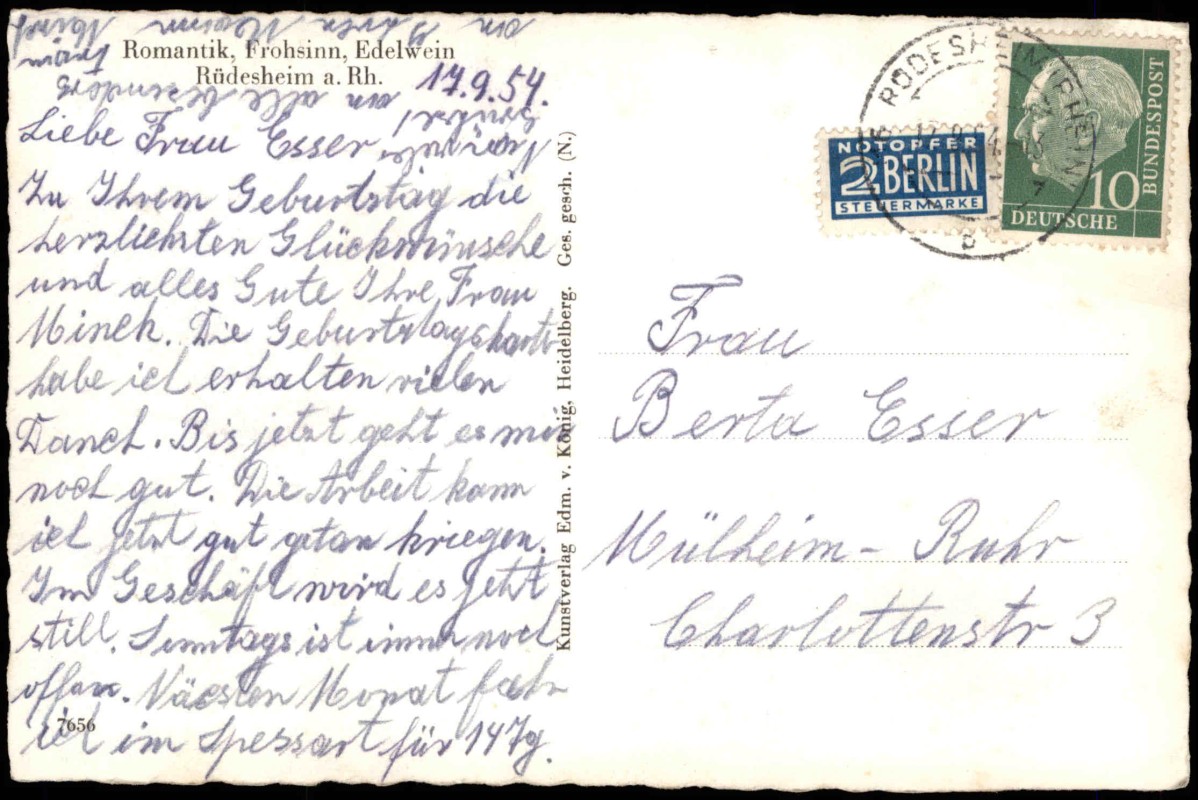 Romantik, Frohsinn, Edelwein
Rüdesheim a. Rh.
17.9.54.
Liebe Frau Esser
Zu Ihrem Geburtstag die
herzlichsten Glückwünsche
und alles Gute Ihre Frau
Minch. Die Geburtstagskarte
habe ich erhalten vielen
Danch. Bis jetzt geht es mir
noch gut. Die Arbeit kann
ich jetzt gut getan kriegen.
Im Geschäft wird es jetzt
still. Sonntags ist immer noch
offen. Näcsten Monat fahr
ich im Spessart für 14 Tg.
an alle besonders
an Ihren Mann
7656
Kunstverlag Edm. v. König, Heidelberg. Ges. gesch. (N.)
NOTOPFER
2 BERLIN
STEUERMARKE
10
DEUTSCHE
BUNDESPOST
Frau
Berta Esser
Mülheim-Ruhr
Charlottenstr 3